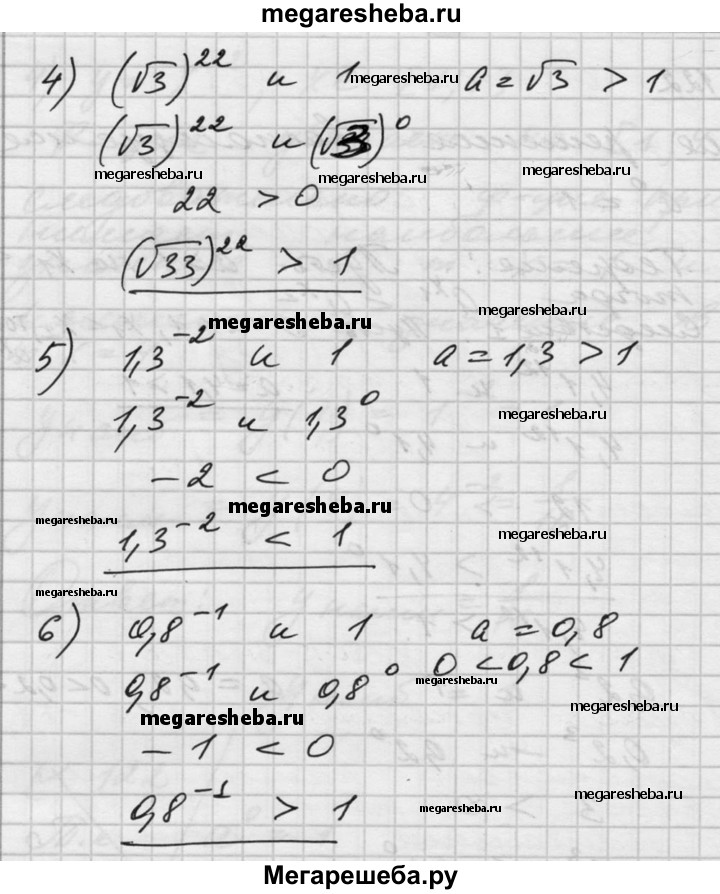 megaresheba.ru
4) (√3)^22 и 1 megaresheba.ru a = √3 > 1
(√3)^22 и (√33)^0
megaresheba.ru megaresheba.ru megaresheba.ru
22 > 0
(√33)^22 > 1
megaresheba.ru megaresheba.ru
5) 1,3^-2 и 1 a = 1,3 > 1
1,3^-2 и 1,3^0 megaresheba.ru
-2 < 0
megaresheba.ru megaresheba.ru
1,3^-2 < 1 megaresheba.ru
megaresheba.ru
6) 0,8^-1 и 1 a = 0,8
0,8^-1 и 0,8^0 0 < 0,8 < 1
megaresheba.ru
megaresheba.ru megaresheba.ru
-1 < 0
0,8^-1 > 1 megaresheba.ru
megaresheba.ru
Мегарешеба.ру